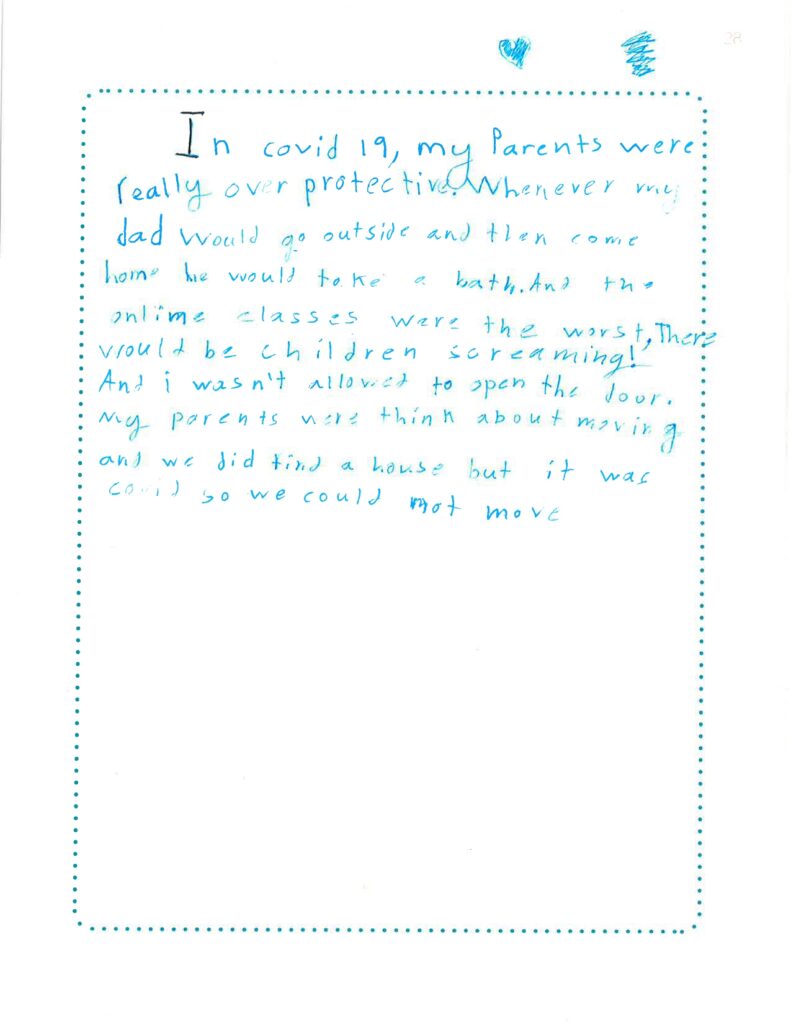 28
In covid 19, my Parents were
really over protective. Whenever my
dad would go outside and then come
home he would take a bath. And the
online classes were the worst, There
would be children screaming!
And i wasn't allowed to open the door.
My parents were think about moving
and we did find a house but it was
covid so we could not move